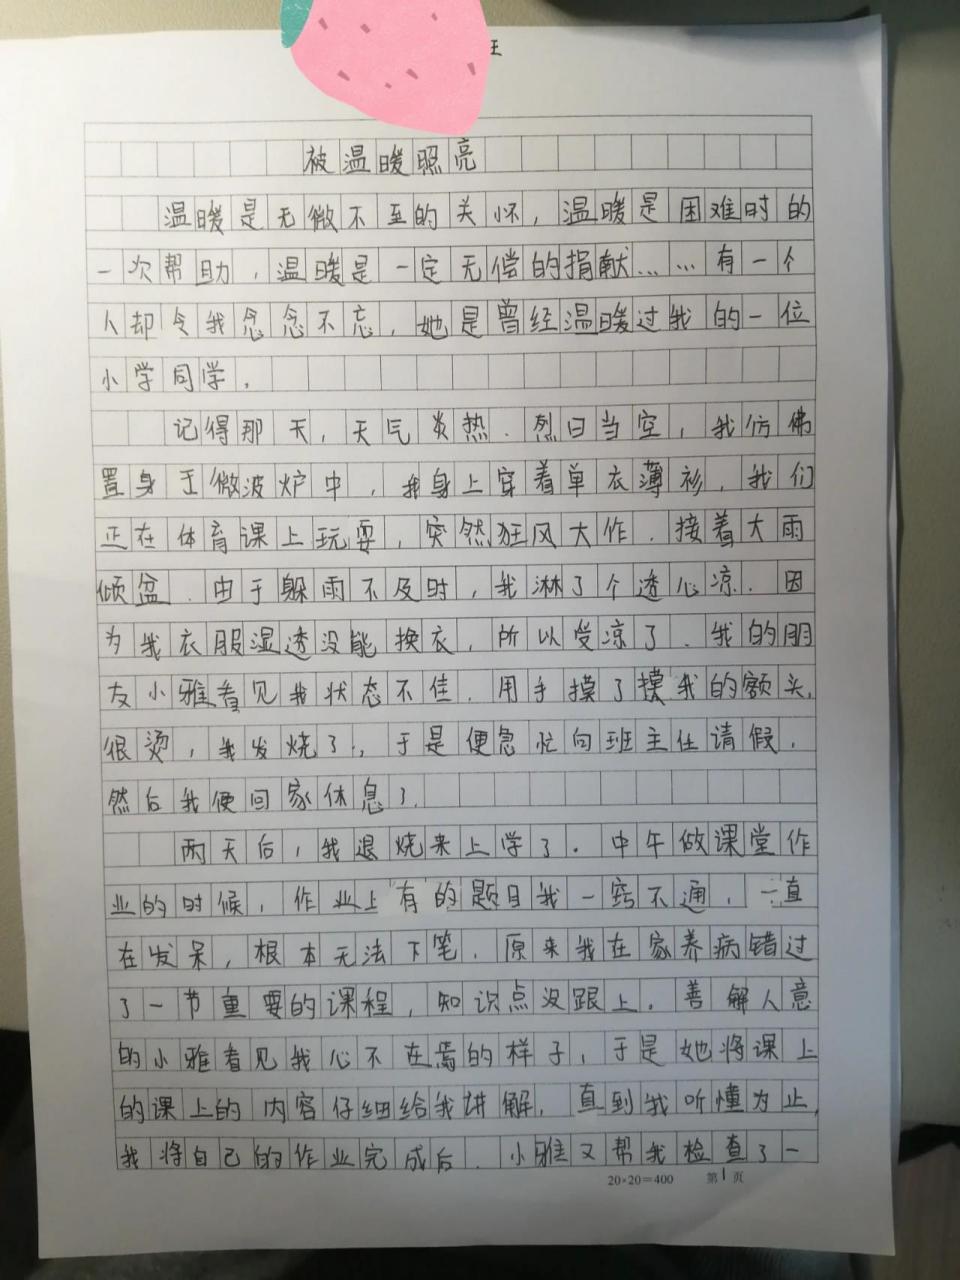 王
被温暖照亮
温暖是无微不至的关怀，温暖是困难时的
一次帮助，温暖是一定无偿的捐献……有一个
人却令我念念不忘，她是曾经温暖过我的一位
小学同学，
记得那天，天气炎热．烈日当空，我仿佛
置身于微波炉中，我身上穿着单衣薄衫，我们
正在体育课上玩耍，突然狂风大作．接着大雨
倾盆．由于躲雨不及时，我淋了个透心凉．因
为我衣服湿透没能换衣，所以受凉了．我的朋
友小雅看见我状态不佳．用手摸了摸我的额头，
很烫，我发烧了!，于是便急忙向班主任请假．
然后我便回家休息了．
两天后，我退烧来上学了．中午做课堂作
业的时候，作业上有的题目我一窍不通，一直
在发呆，根本无法下笔．原来我在家养病错过
了一节重要的课程，知识点没跟上．善解人意
的小雅看见我心不在焉的样子，于是她将课上
的课上的内容仔细给我讲解．直到我听懂为止，
我将自己的作业完成后．小雅又帮我检查了一
20×20=400 第1页